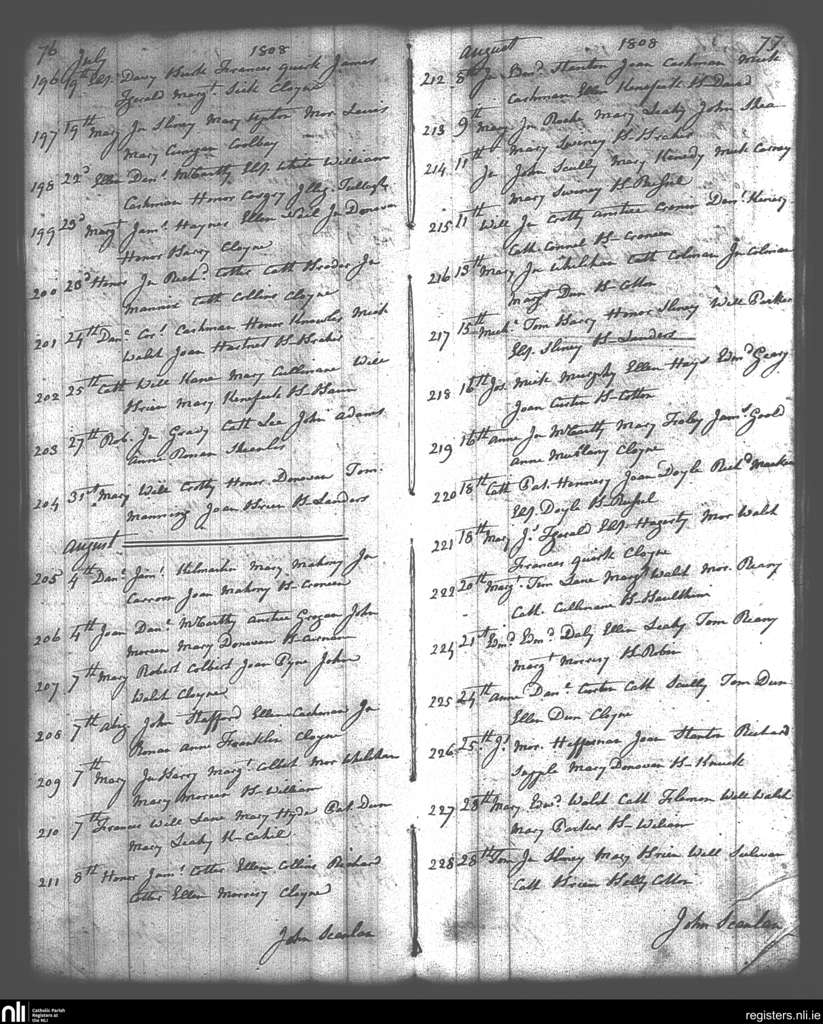 76 July 1808
196 19th Elis. Davy Burk Frances quirk James
Fgerald Margt. Sisk Cloyne
197 19th Mary Jn Slney Mary Upton Mor. Lewis
Mary Coolbay
198 22d Ellen Danl. McCarthy Elis. White William
Cashman Honor
199 23d Margt. Jams. Haynes Ellen Jn Donovan
Honor Barry Cloyne
200 23d Honor Jn Richd. Cotter Cath Broder Jn
Cath Collins Cloyne
201 24th Danl. Cors. Cashman Honor Knowles Mick
Walsh Joan Hartnet B. Brahir
202 25th Cath Will Kane Mary Cullinane Will
Brien Mary Kenefeck B.
203 27th Rob. Jn Grady Cath Lee John Adams
Anne Ronan
204 31st Mary Will Crotty Honor Donovan Tom.
Joan Brien B. Landers
August
205 4th Danl. Jams. Kilmartin Mary Mahony Jn
Carroon Joan Mahony B. Croneen
206 4th Joan Danl. McCarthy Anstice Grogan John
Moreen Mary Donovan
207 7th Mary Robert Colbert Joan Pyne John
Walsh Cloyne
208 7th Abig John Stafford Ellen Cashman Jn
Ronan Anne Franklin Cloyne
209 7th Mary Jn Barry Margt. Colbert Mor Whelehan
Mary B. William
210 7th Frances Will Lane Mary Hyde Pat. Dun
Mary Leahy K-Cahil
211 8th Honor Jams. Cotter Ellen Collins Richard
Cotter Ellen Morrisy Cloyne
John Scanlan
August 1808 77
212 8th Jn Edmd. Stanton Joan Cashman Mick
Cashman Ellen Kenefeck B. David
213 9th Mary Jn Roche Mary Leahy John Shea
Mary Sweney B. Braher
214 11th Jn John Scully Mary Kenedy Mick
Mary Sweney B.
215 11th Will Jn Crotty Anstice Cronin Danl.
Cath. Connel B. Croneen
216 13th Mary Jn Whelehan Cath Colman Jn Colman
Margt Dun B. Cotton
217 15th Michl. Tom Barry Honor Slney Will Parker
Elis. Slney B. Landers
218 16th Jos. Mick Murphy Ellen Hays Edmd Geary
Joan Carter B. Cotton
219 16th Anne Jn McCarthy Mary Jams. Goold
Anne Mullany Cloyne
220 18th Cath Pat. Hennesy Joan Doyle Richd
Elis. Doyle B.
221 18th Mary Js. Fgerald Elis. Hagerty Mor Walsh
Frances quirk Cloyne
222 20th Margt. Tim Lane Margt Walsh Mor. Reary
Cath. Cullinane B.
224 21st Edmd. Edmd. Daly Ellen Leahy Tom Reary
Margt Morrisy B. Robin
225 24th Anne Danl. Carter Cath Scully Tom Dun
Ellen Dun Cloyne
226 25th Js. Mor. Heffernan Joan Stanton Richard
Supple Mary Donovan B-Knuck
227 28th Mary Edmd. Walsh Cath Will Walsh
Mary Parker B-William
228 28th Tom Jn Slney Mary Brien Will
Cath Brien
John Scanlan
nli Catholic Parish
Registers at
the NLI
registers.nli.ie